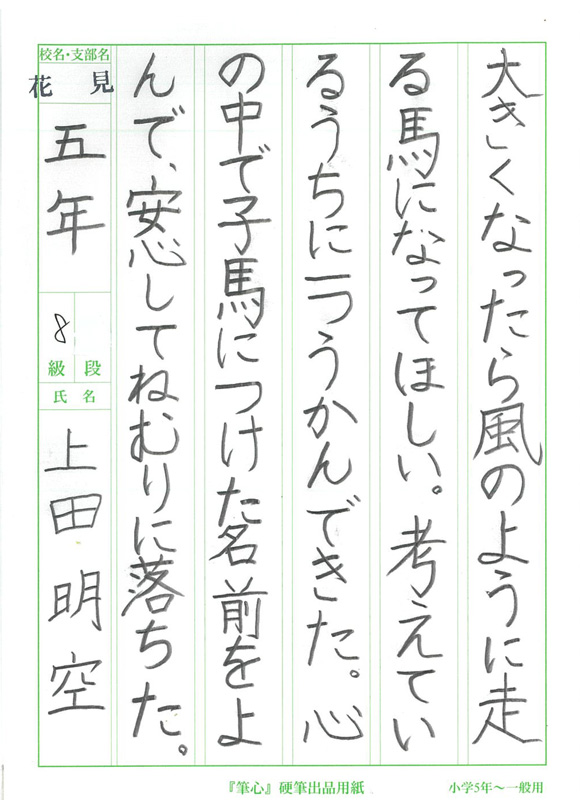 大きくなったら風のように走
る馬になってほしい。考えてい
るうちに一つうかんできた。心
の中で子馬につけた名前をよ
んで、安心してねむりに落ちた。
校名・支部名
花見
五年
8
級 段
氏名
上田明空
『筆心』硬筆出品用紙
小学5年～一般用